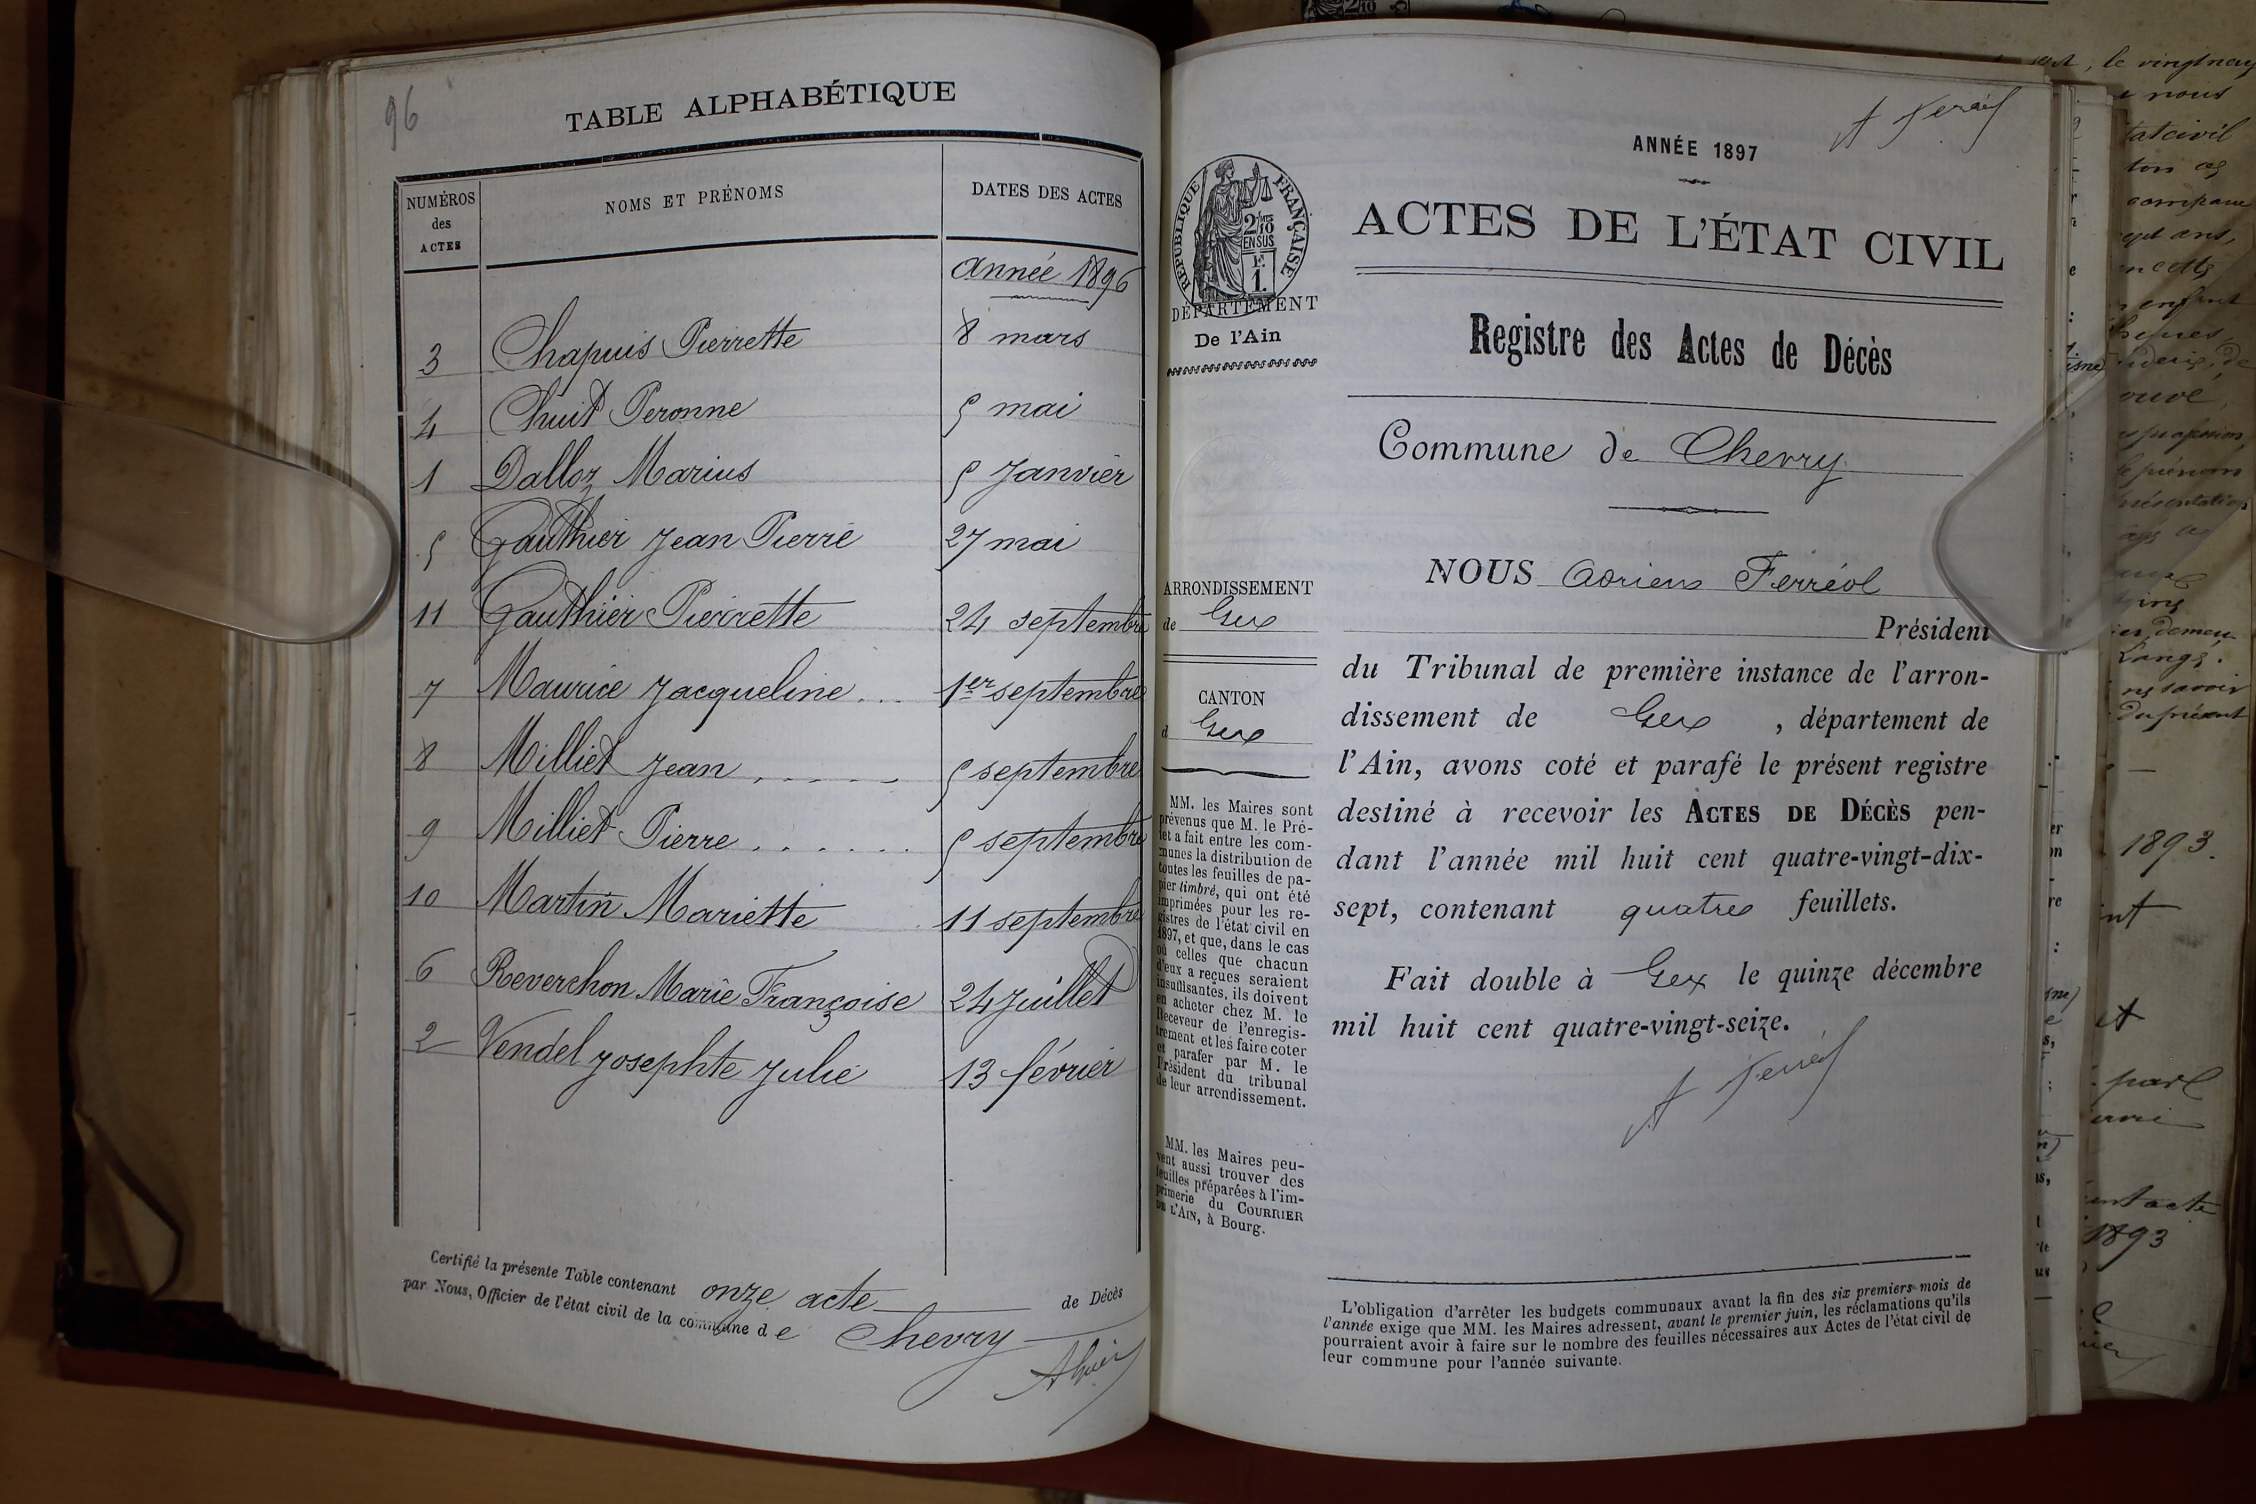 96
TABLE ALPHABÉTIQUE
NUMÉROS des ACTES
NOMS ET PRÉNOMS
DATES DES ACTES
année 1896
3 Chapuis Pierrette 8 mars
4 Chuit Peronne 5 mai
1 Dalloz Marius 5 Janvier
5 Gauthier Jean Pierre 27 mai
11 Gauthier Pierrette 24 septembre
7 Maurice Jacqueline ... 1er septembre
8 Milliet Jean . . . . . 5 septembre
9 Milliet Pierre . . . . . . 5 septembre
10 Martin Mariette 11 septembre
6 Reverchon Marie Françoise 24 Juillet
2 Vendel Josephte Julie 13 février
Certifié la présente Table contenant onze acte de Décès
par Nous, Officier de l'état civil de la commune de Chevry
A Ferréol
ANNÉE 1897
RÉPUBLIQUE FRANÇAISE
2/10 EN SUS
1
DÉPARTEMENT
De l'Ain
ACTES DE L'ÉTAT CIVIL
Registre des Actes de Décès
Commune de Chevry
ARRONDISSEMENT
de Gex
CANTON
d Gex
MM. les Maires sont
prévenus que M. le Pré-
fet a fait entre les com-
munes la distribution de
toutes les feuilles de pa-
pier timbré, qui ont été
imprimées pour les re-
gistres de l'état civil en
1897, et que, dans le cas
où celles que chacun
d'eux a reçues seraient
insuffisantes, ils doivent
en acheter chez M. le
Receveur de l'enregis-
trement et les faire coter
et parafer par M. le
Président du tribunal
de leur arrondissement.
MM. les Maires peu-
vent aussi trouver des
feuilles préparées à l'im-
primerie du COURRIER
DE L'AIN, à Bourg.
NOUS Adrien Ferréol
Président
du Tribunal de première instance de l'arron-
dissement de Gex , département de
l'Ain, avons coté et parafé le présent registre
destiné à recevoir les ACTES DE DÉCÈS pen-
dant l'année mil huit cent quatre-vingt-dix-
sept, contenant quatre feuillets.
Fait double à Gex le quinze décembre
mil huit cent quatre-vingt-seize.
A Ferréol
L'obligation d'arrêter les budgets communaux avant la fin des six premiers mois de
l'année exige que MM. les Maires adressent, avant le premier juin, les réclamations qu'ils
pourraient avoir à faire sur le nombre des feuilles nécessaires aux Actes de l'état civil de
leur commune pour l'année suivante.
le vingt neuf
nous
compare
enfant
présentation
1893
1893